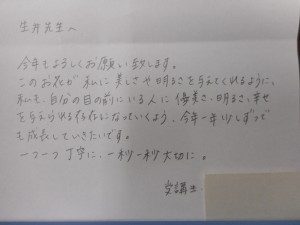 生井先生へ
今年もよろしくお願い致します。
このお花が私に美しさや明るさを与えてくれるように、
私も、自分の目の前にいる人に優美さ、明るさ、幸せ
を与えられる存在になっていくよう、今年一年少しずつで
も成長していきたいです。
一つ一つ丁寧に、一秒一秒大切に。
受講生